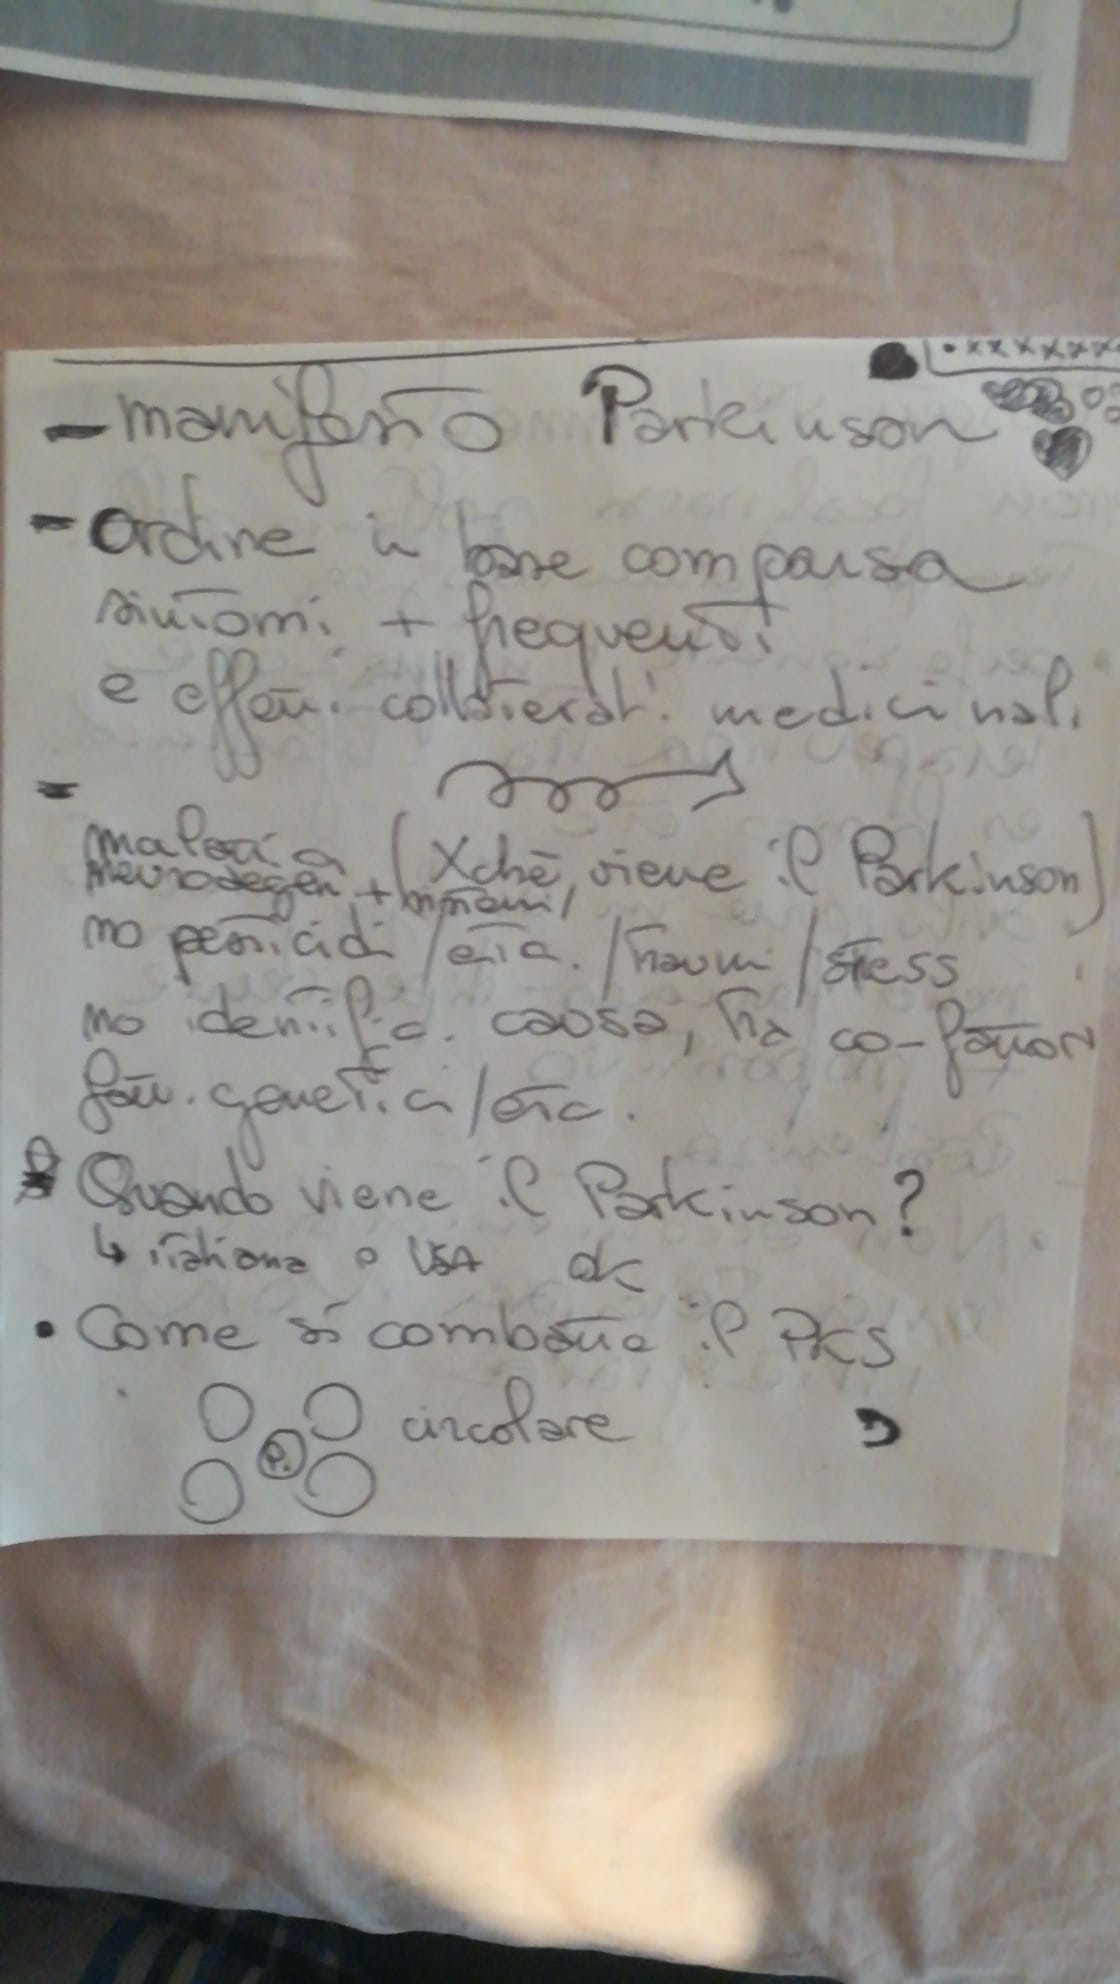 - manifesto Parkinson
- Ordine in base comparsa
sintomi + frequenti
e effetti collaterali medicinali
malattia (Xchè viene il Parkinson)
neurodegen +
no pesticidi / età. / traumi / stress
no identific. causa, tra co-fattori
fatt. genetici / età.
Quando viene il Parkinson?
↳ italiana o USA ok
• Come si combatte il PKS
circolare
P.